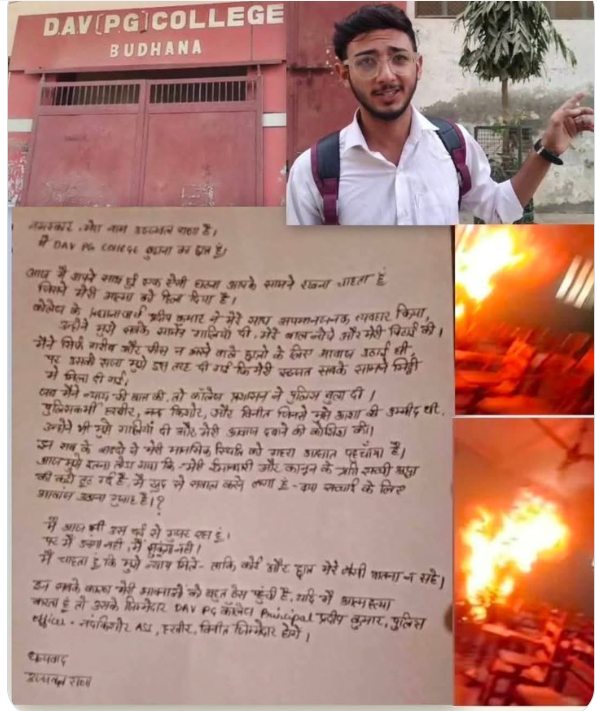 DAV(PG)COLLEGE
BUDHANA
नमस्कार, मेरा नाम उज्जवल राणा है।
मैं DAV PG COLLEGE बुढ़ाना का छात्र हूँ।
आज मैं अपने साथ हुई एक ऐसी घटना आपके सामने रखना चाहता हूँ
जिसने मेरी आत्मा को हिला दिया है।
कॉलेज के प्रधानाचार्य प्रदीप कुमार ने मेरे साथ अपमानजनक व्यवहार किया,
उन्होंने मुझे सबके सामने गालियाँ दी, मेरे बाल नोचे और मेरी पिटाई की।
मैंने सिर्फ गरीब और फीस न भरने वाले छात्रों के लिए आवाज उठाई थी,
पर उसकी सजा मुझे इस तरह दी गई कि मेरी इज्जत सबके सामने मिट्टी
में मिला दी गई।
जब मैंने न्याय की बात की, तो कॉलेज प्रशासन ने पुलिस बुला दी।
पुलिसकर्मी, नन्द किशोर, और विनीत जिनसे मुझे सुरक्षा की उम्मीद थी,
उन्होंने भी मुझे गालियाँ दी और मेरी आवाज दबाने की कोशिश की।
इन सब के कारण से मेरी मानसिक स्थिति को गहरा आघात पहुँचा है।
आज मुझे ऐसा लगा गया कि - मेरी ईमानदारी और कानून के प्रति सच्ची श्रद्धा
कहीं टूट गई है, मैं खुद से सवाल करने लगा हूँ - क्या सच्चाई के लिए
आवाज उठाना गुनाह है।?
मैं आज भी उस दर्द से गुजर रहा हूं।
पर मैं डरूंगा नहीं, मैं झुकूंगा नहीं।
मैं चाहता हूं कि मुझे न्याय मिले - ताकि कोई और छात्र मेरे जैसी यातना न सहे।
इन सबके कारण मेरी भावनाओं को बहुत ठेस पहुंची है, यदि मैं आत्महत्या
करता हूं तो उसके जिम्मेदार DAV PG कॉलेज Principal प्रदीप कुमार, पुलिस
officer - नंदकिशोर ASI, विनीत जिम्मेदार होंगे।
धन्यवाद
उज्जवल राणा